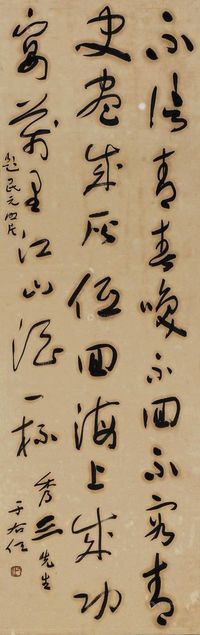 不信青春喚不回不容青
史盡成灰低回海上成功
宴萬里江山酒一杯
題民元照片
秀三先生
于右任